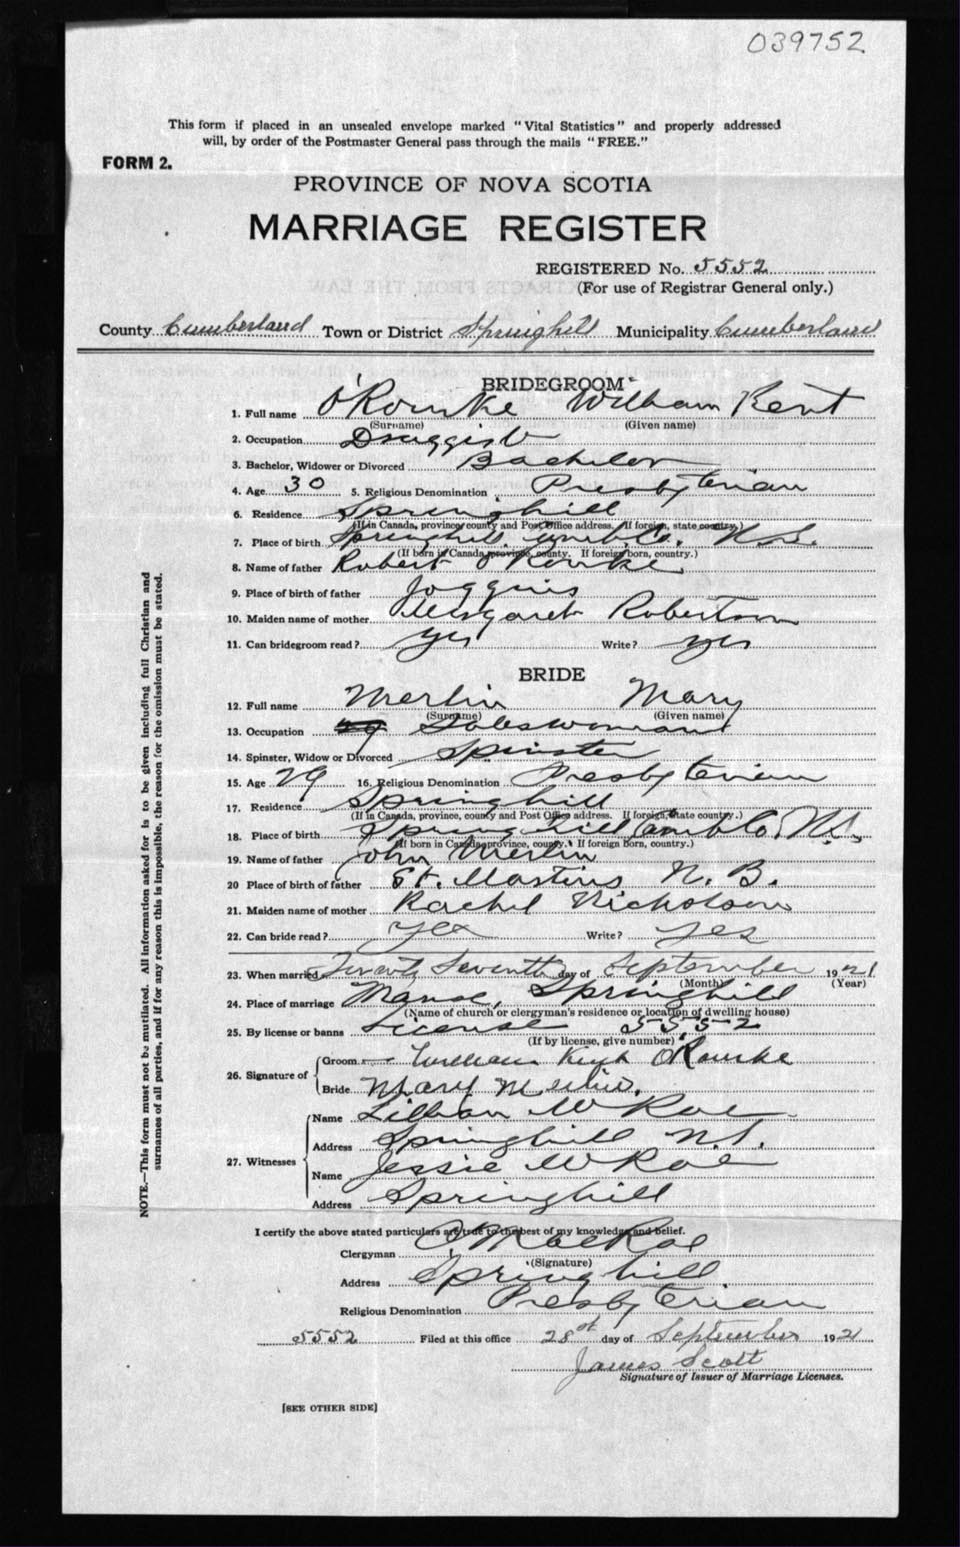 039752
This form if placed in an unsealed envelope marked "Vital Statistics" and properly addressed
will, by order of the Postmaster General pass through the mails "FREE."
FORM 2.
PROVINCE OF NOVA SCOTIA
MARRIAGE REGISTER
REGISTERED No. 5552
(For use of Registrar General only.)
County Cumberland Town or District Springhill Municipality Cumberland
BRIDEGROOM
1. Full name O'Rourke William Kent
(Surname) (Given name)
2. Occupation Druggist
3. Bachelor, Widower or Divorced Bachelor
4. Age 30 5. Religious Denomination Presbyterian
6. Residence Springhill
(If in Canada, province, county and Post Office address. If foreign, state country.)
7. Place of birth Springhill Cumb Co. N.S.
(If born in Canada, province, county. If foreign born, country.)
8. Name of father Robert O'Rourke
9. Place of birth of father Joggins
10. Maiden name of mother Margaret Robertson
11. Can bridegroom read? yes Write? yes
BRIDE
12. Full name Merlin Mary
(Surname) (Given name)
13. Occupation Saleswoman
14. Spinster, Widow or Divorced Spinster
15. Age 29 16. Religious Denomination Presbyterian
17. Residence Springhill
(If in Canada, province, county and Post Office address. If foreign, state country.)
18. Place of birth Springhill Cumb Co. N.S.
(If born in Canada, province, county. If foreign born, country.)
19. Name of father John Merlin
20 Place of birth of father St. Martins N. B.
21. Maiden name of mother Rachel Nicholson
22. Can bride read? yes Write? yes
23. When married Twenty Seventh day of September 1921
(Month) (Year)
24. Place of marriage Manse, Springhill
(Name of church or clergyman's residence or location of dwelling house)
25. By license or banns License 5552
(If by license, give number)
26. Signature of Groom William Kent O'Rourke
Bride Mary Merlin.
27. Witnesses
Name Lillian McRae
Address Springhill N.S.
Name Jessie McRae
Address Springhill
I certify the above stated particulars are true to the best of my knowledge and belief.
Clergyman MacRae
(Signature)
Address Springhill
Religious Denomination Presbyterian
5552 Filed at this office 28th day of September 1921
James Scott
Signature of Issuer of Marriage Licenses.
[SEE OTHER SIDE]
NOTE.—This form must not be mutilated. All information asked for is to be given including full Christian and
surnames of all parties, and if for any reason this is impossible, the reason for the omission must be stated.